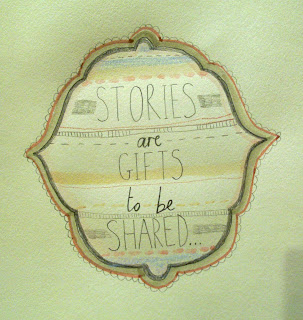 STORIES
are
GIFTS
to be
SHARED...